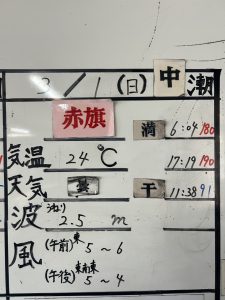 3/1(日) 中潮
赤旗 満 6:04 180
気温 24℃ 17:19 190
天気 曇 干 11:38 91
波 うねり 2.5 m
風 (午前) 東 5～6
(午後) 東南東 5～4